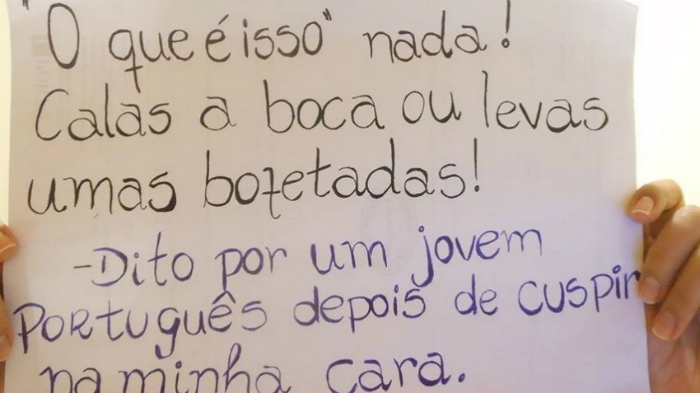 "O que é isso" nada!
Calas a boca ou levas
umas bofetadas!
-Dito por um jovem
Português depois de cuspir
na minha cara.